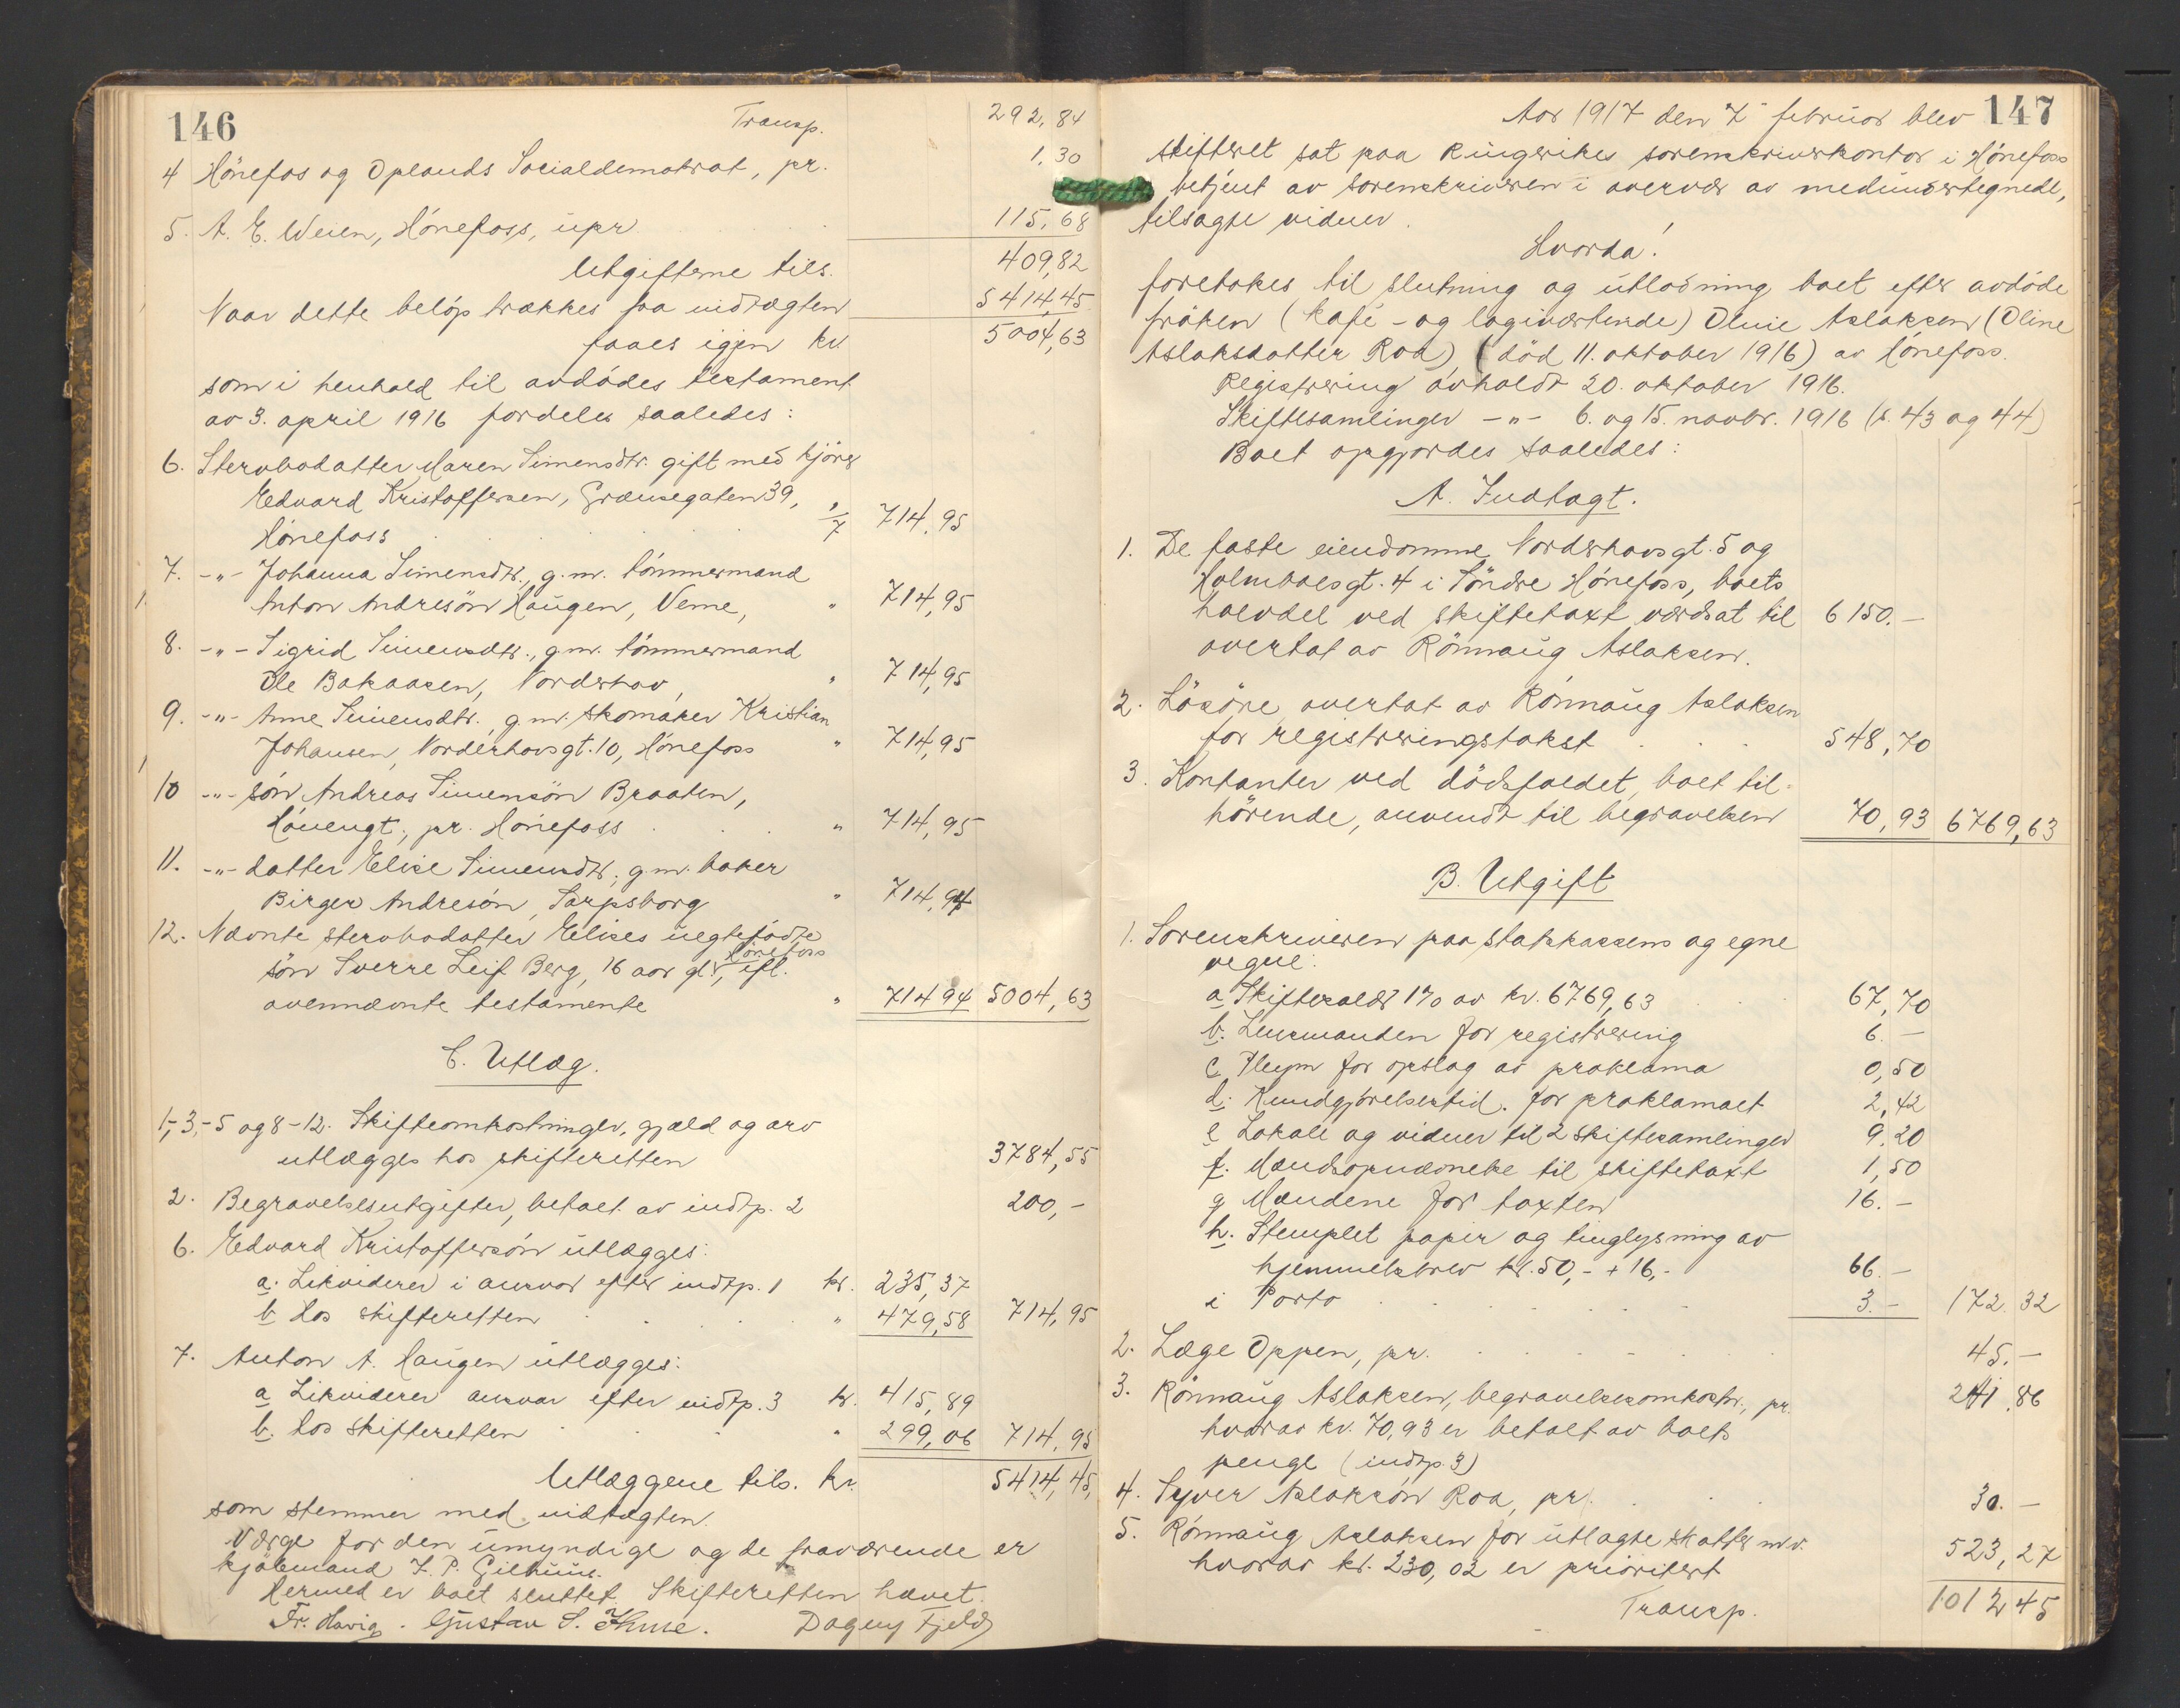 146
Transp. 292,84
4 Hönefos og Oplands Socialdemokrat, pr. 1,30
5. A. E. Weien, Hönefoss, upr 115,68
Utgifterne tils. 409,82
Naar dette belöp trækkes fra indtægten 5414,45
faaes igjen kr. 5004,63
som i henhold til avdödes testament
av 3. april 1916 fordeles saaledes:
6. Stervbodatter Maren Simensdtr. gift med kjörer
Edvard Kristoffersen, Grænsegaten 39,
Hönefoss 1/7 714,95
7. -"- Johanna Simensdtr., g.m. tömmermand
Anton Andresön Haugen, Veme, " 714,95
8. -"- Sigrid Simensdtr., g.m. tömmermand
Ole Bakaasen, Norderhov, " 714,95
9. -"- Anne Simensdtr. g.m. skomaker Kristian
Johansen, Norderhovsgt. 10, Hönefoss " 714,95
10 -"- sön Andreas Simensön Braaten,
Hönengt., pr. Hönefoss " 714,95
11. -"- datter Elise Simensdtr., g.m. baker
Birger Andresön, Sarpsborg " 714,94
12. Nævnte stervbodatter Elises uegtefödte
sön Sverre Leif Berg, 16 aar gl., Hönefoss, ifl.
ovennævnte testamente " 714 94 5004,63
C. Utlæg.
1, 3,-5 og 8-12. Skifteomkostninger, gjæld og arv
utlægges hos skifteretten 3784,55
2. Begravelsesutgifter, betalt av indtp. 2 200,-
6. Edvard Kristoffersön utlægges:
a. Likviderer i ansvar efter indtp. 1 kr. 235,37
b. hos skifteretten " 479,58 714,95
7. Anton A. Haugen utlægges:
a Likviderer ansvar efter indtp. 3 kr. 415,89
b. hos skifteretten " 299,06 714,95
Utlæggene tils. kr. 5414,45,
som stemmer med indtægten.
Værge for den umyndige og de fraværende er
kjöbmand J. P. Gilhuus.
Hermed er boet sluttet. Skifteretten hævet.
Fr. Havig. Gustav S. Thune. Dagny Fjeld
147
Aar 1917 den 7 februar blev
skifteret sat paa Ringerikes sorenskriverkontor i Hönefoss
betjent av sorenskriveren i overvær av medundertegnede,
tilsagte vidner.
Hvorda!
foretokes til slutning og utlodning boet efter avdöde
fröken (kafé- og logivertinde) Oline Aslaksen (Oline
Aslaksdatter Roa), (död 11. oktober 1916) av Hönefoss.
Registrering avholdt 20. oktober 1916.
Skiftesamlinger -"- 6. og 15. novbr. 1916 (s. 43 og 44)
Boet opgjordes saaledes:
A. Indtægt.
1. De faste eiendomme Norderhovsgt. 5 og
Holmboesgt. 4 i Söndre Hönefoss, boets
halvdel ved skiftetaxt værdsat til 6150.-
overtat av Rönnaug Aslaksen.
2. Lösöre overtat av Rönnaug Aslaksen
for registreringstakst 548,70
3. Kontanter ved dödsfaldet, boet til-
hörende, anvendt til begravelsen 70,93 6769,63
B. Utgift
1. Sorenskriveren paa statskassens og egne
vegne:
a Skifterald 1% av kr. 6769,63 67,70
b. Lensmanden for registrering 6.-
c. Fleym for opslag av proklama 0,50
d. Kundgjörelsestid. for proklamaet 2,42
e Lokale og vidner til 2 skiftesamlinger 9.20
f. Mændsopnævnelse til skiftetaxt 1,50
g Mændene for taxten 16.-
h. Stemplet papir og tinglysning av
hjemmelsbrev kr. 50,- + 16,- 66.-
i Porto 3.- 172.32
2. Læge Oppen, pr. 45.-
3. Rönnaug Aslaksen, begravelsesomkostn., pr. 241.86
hvorav kr. 70,93 er betalt av boets
penge (indtp. 3)
4. Syver Aslaksön Roa, pr. 30.-
5. Rönnaug Aslaksen for utlagte skatter m.v. 523,27
hvorav kr. 230,02 er prioritert
Transp. 1012 45